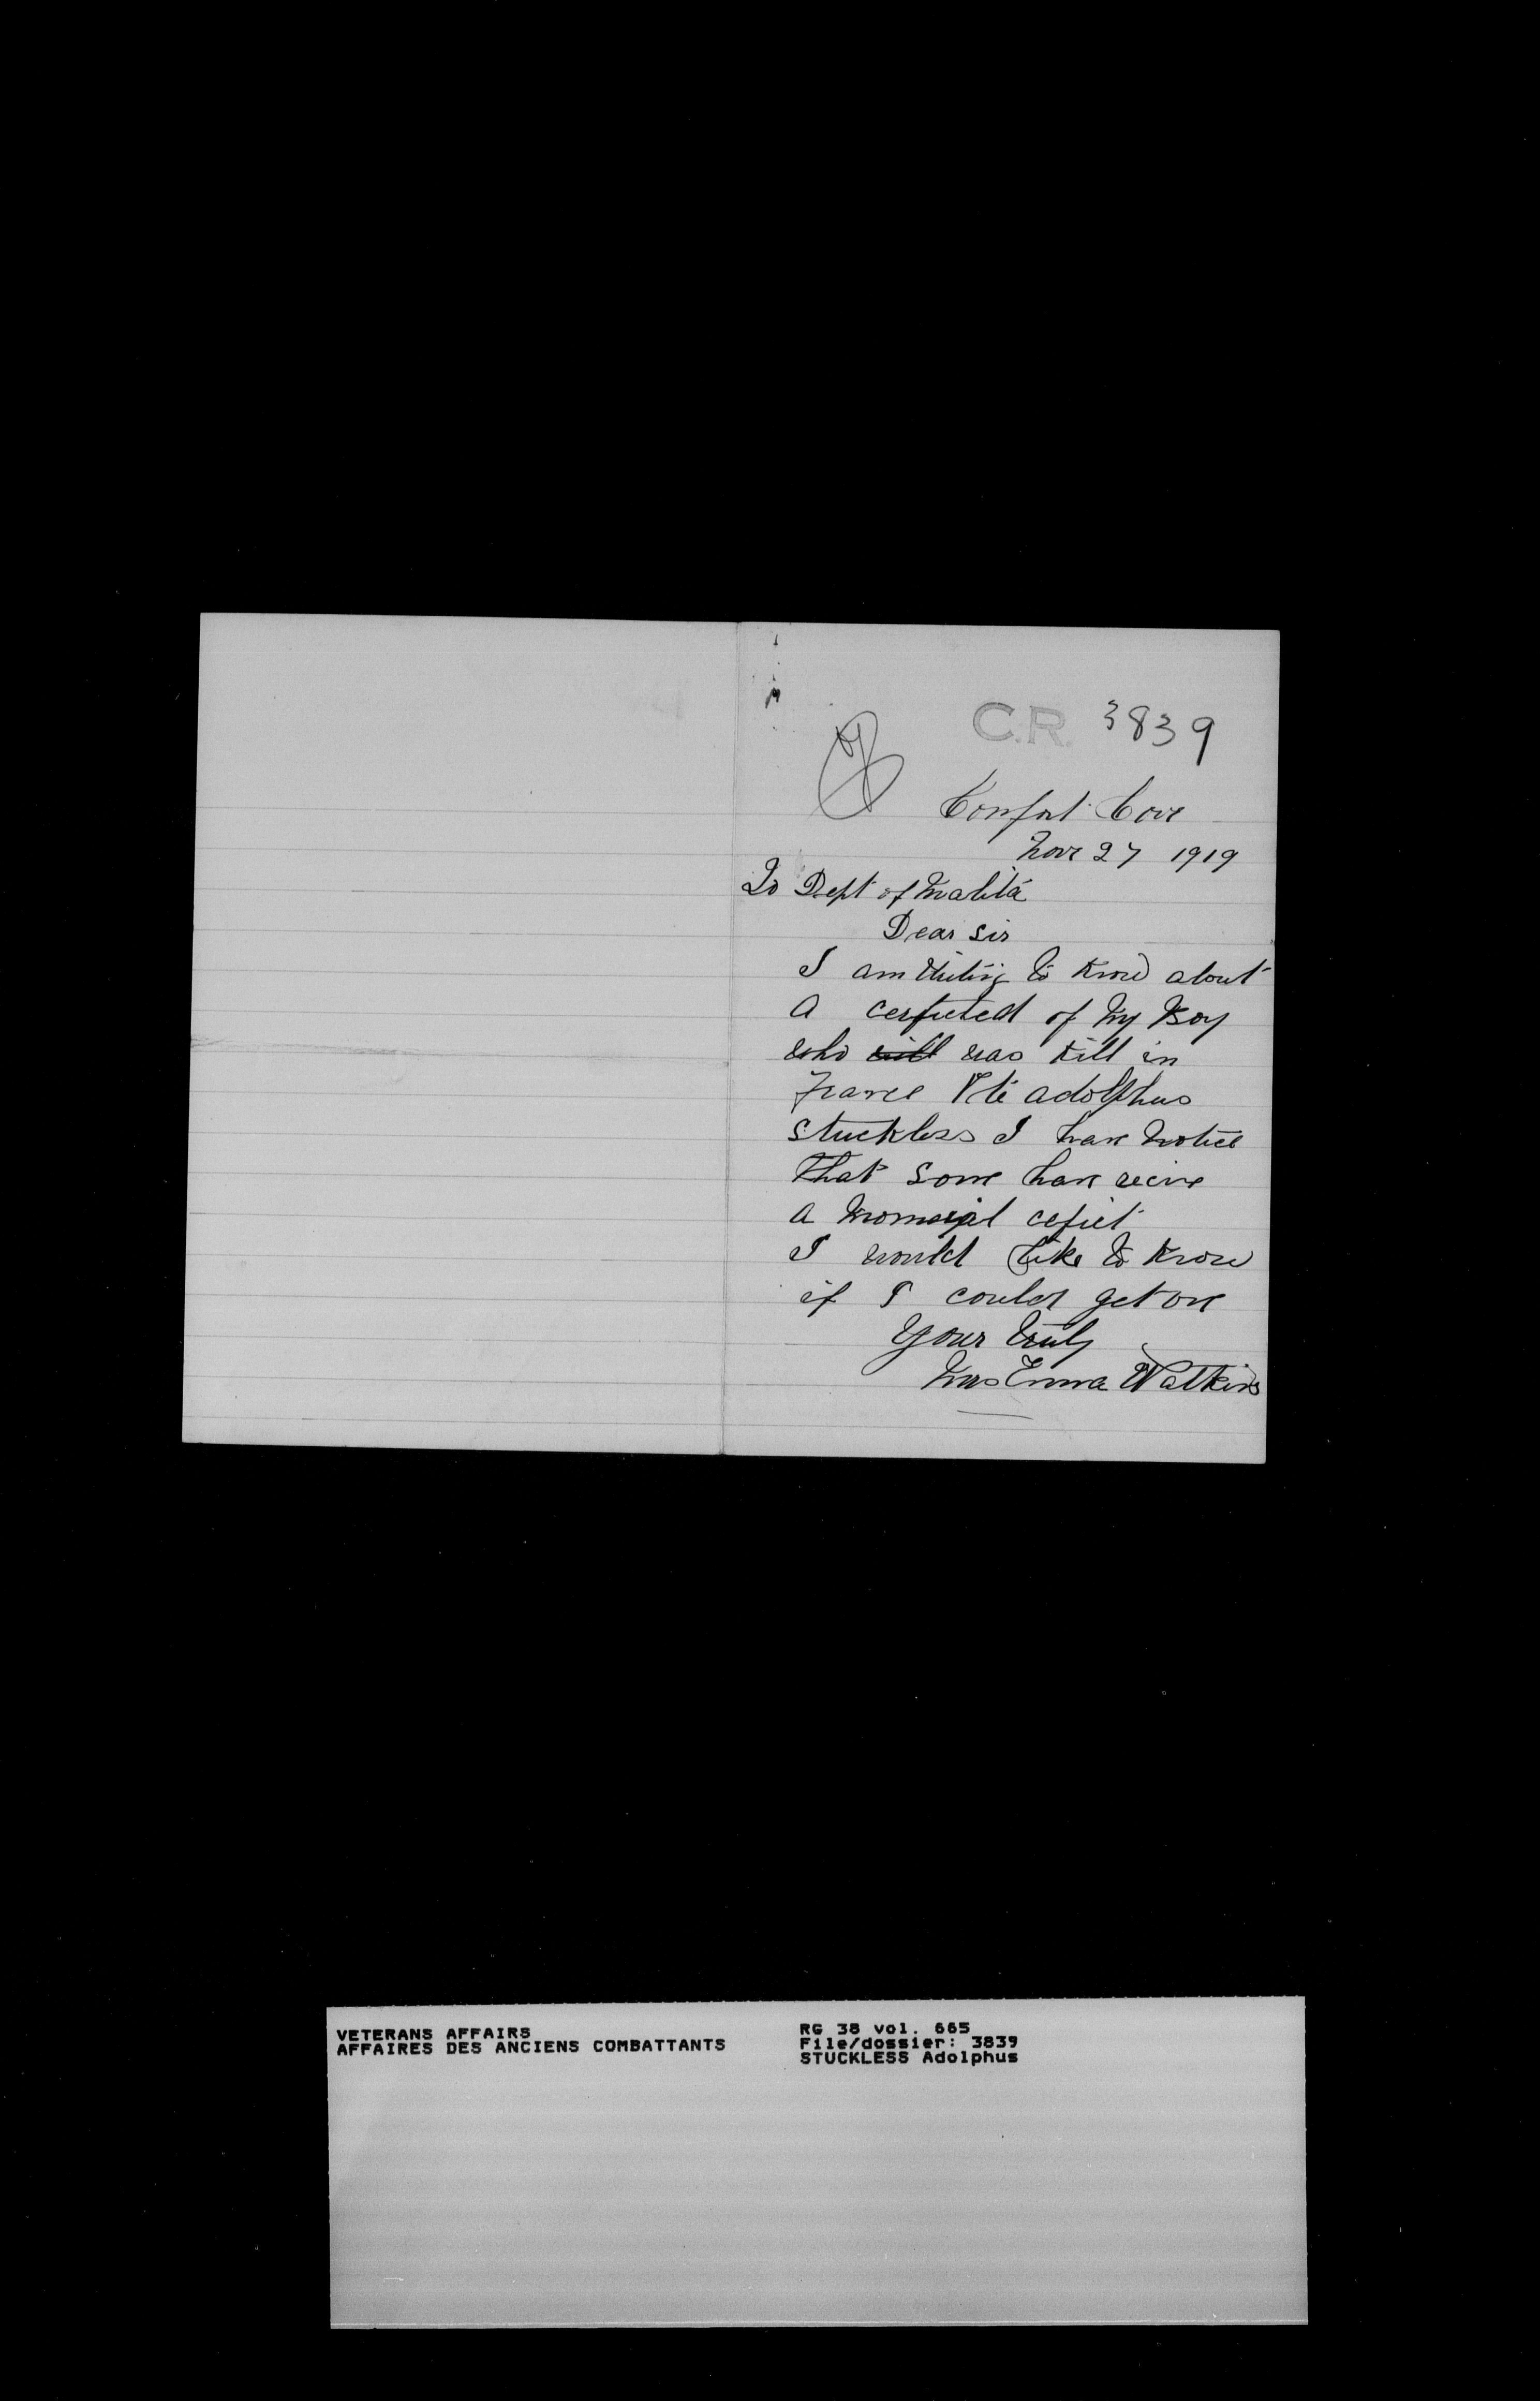 C.R. 3839
Comfort Cove
Nov 27 1919
To Dept of Malitia
Dear Sir
I am to know about
a cerfuted of My Boy
who will was Kill in
France Pte adolphus
Stuckless I have Notice
That Some have recive
a Momorial cefict
I would like to Know
if I could get one
Your truly
Mrs Emma Watkins
VETERANS AFFAIRS
AFFAIRES DES ANCIENS COMBATTANTS
RG 38 vol. 665
File/dossier: 3839
STUCKLESS Adolphus